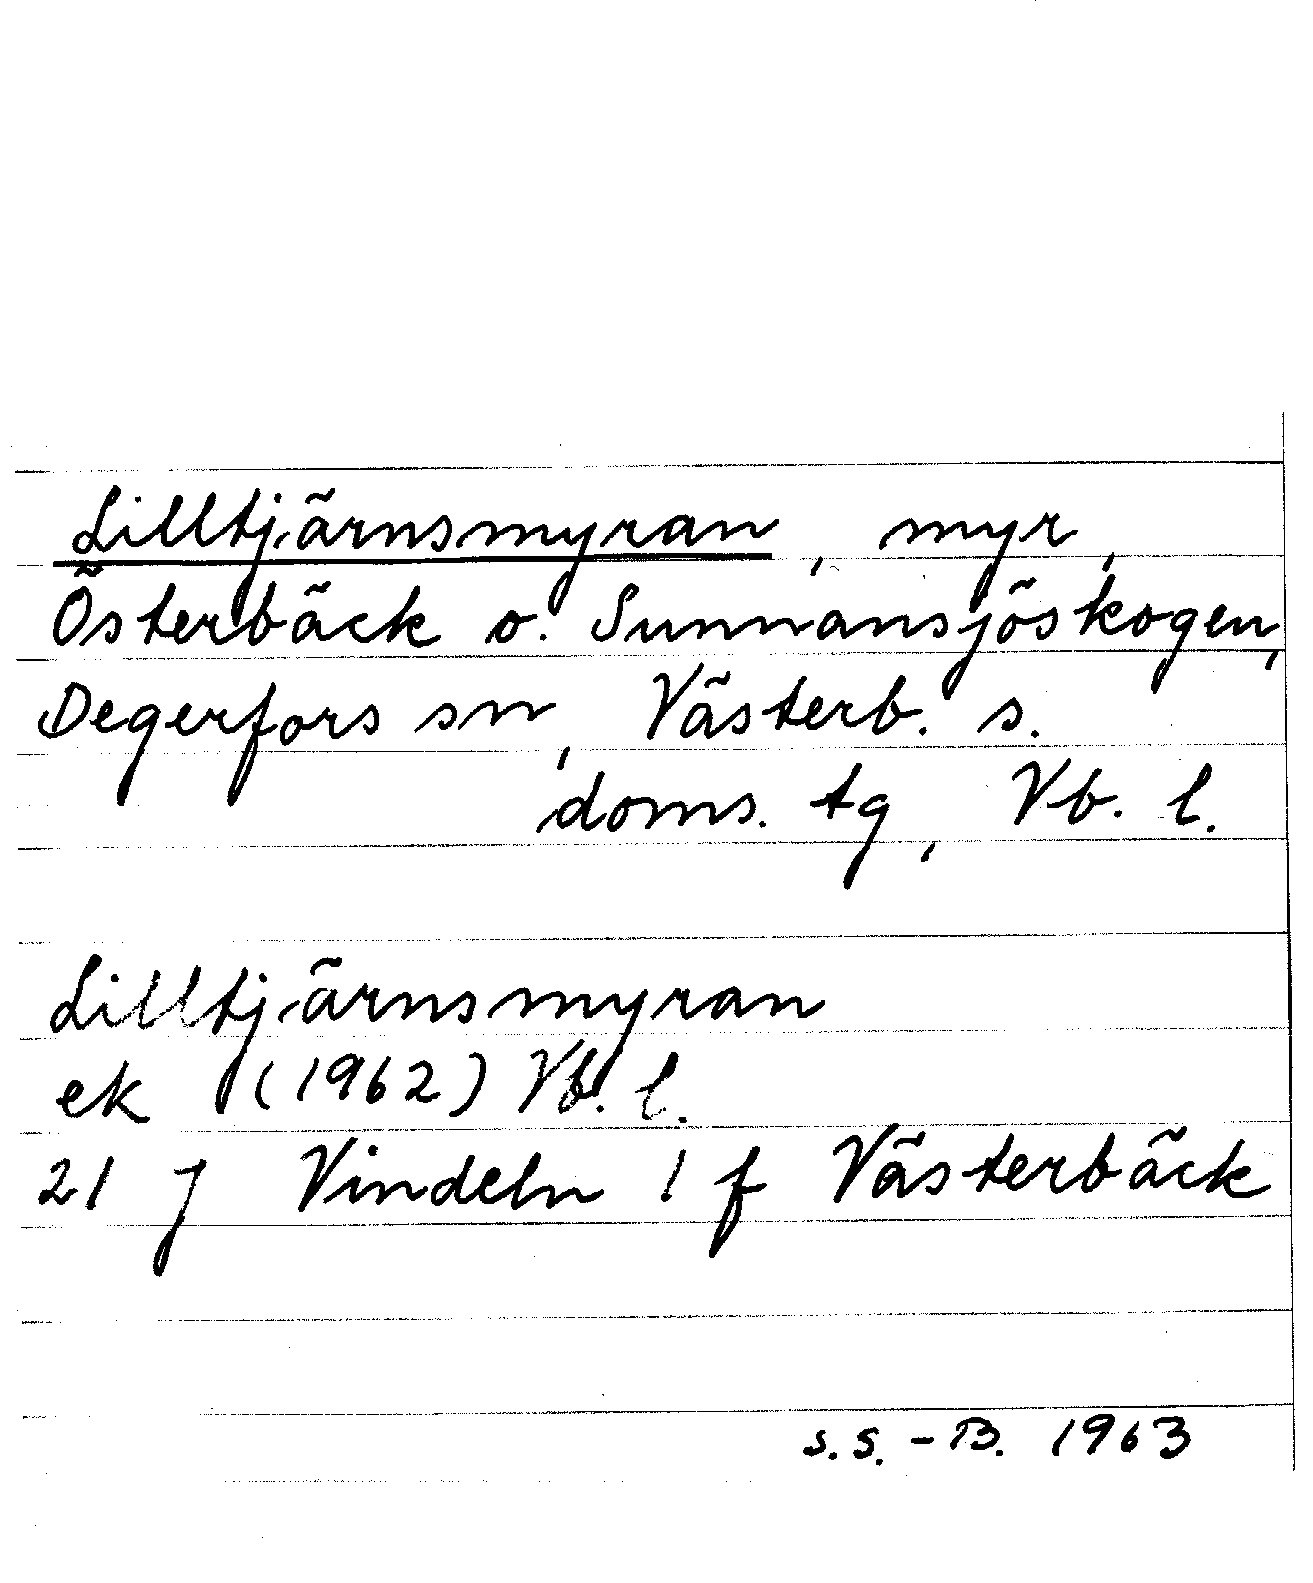 Lilltjärnsmyran, myr,
Österbäck o. Sunnansjöskogen,
Degerfors sn, Västerb. s.
doms. tg, Vb. l.
Lilltjärnsmyran
ek (1962) Vb. l.
21 J Vindeln 1 f Västerbäck
S.S.-B. 1963